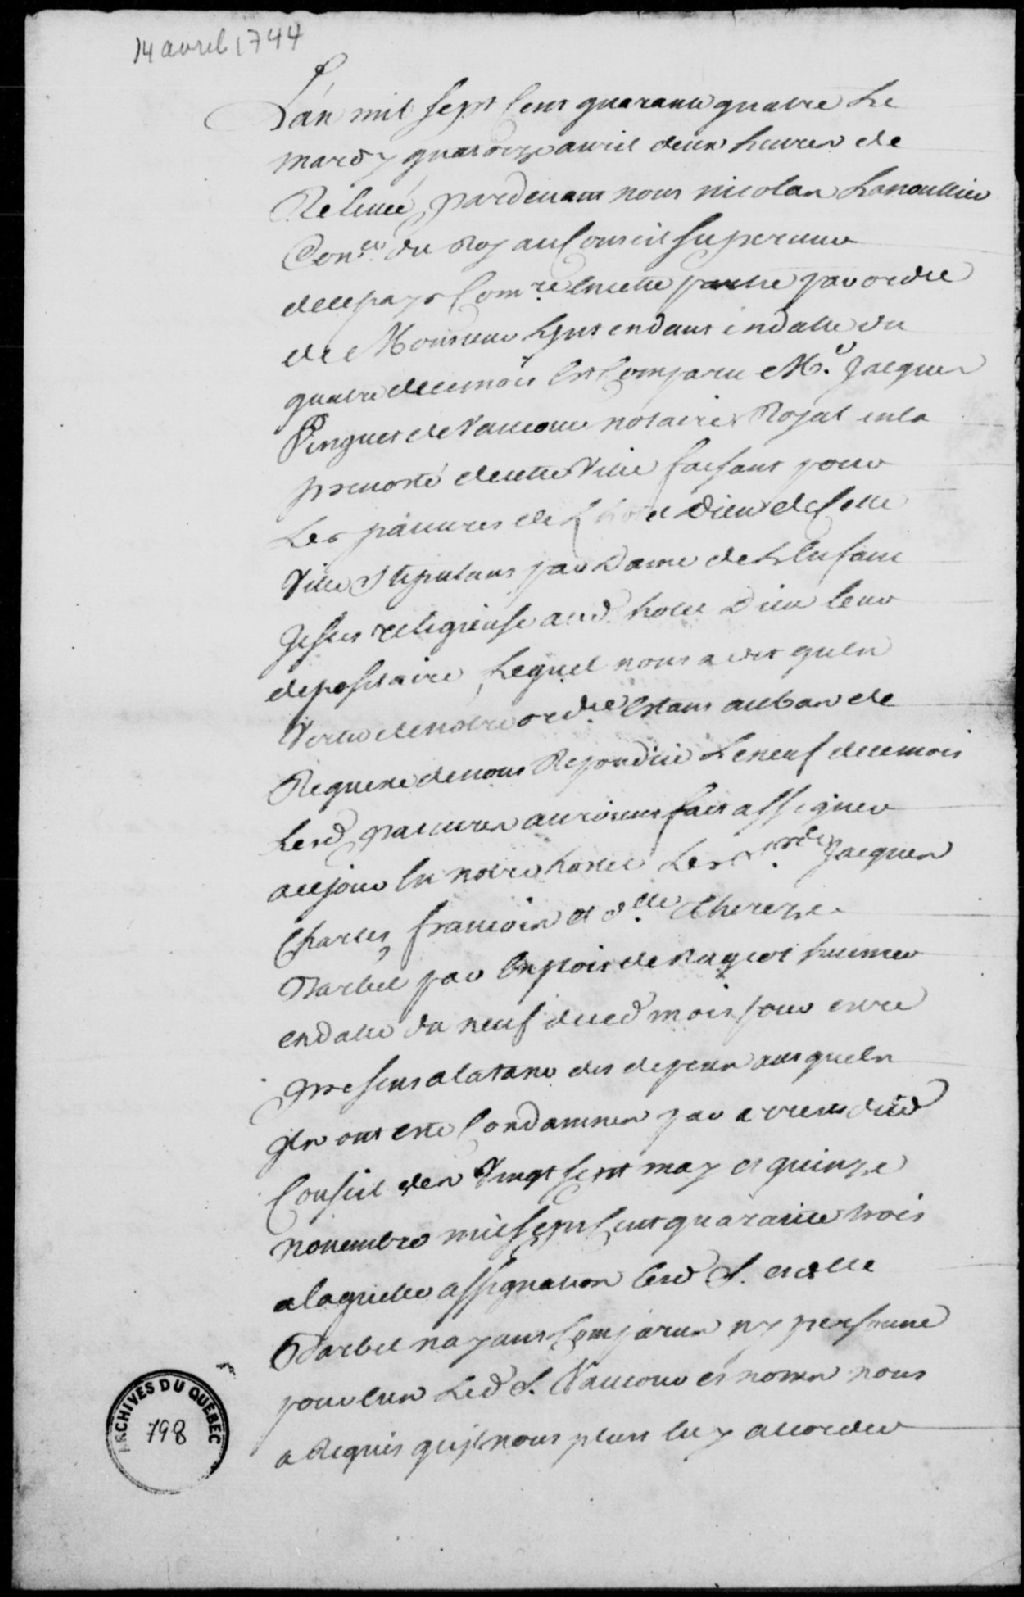 14 avril 1744
L'an mil sept Cens quarante quatre Le
mardy quatorze avril deux heures de
Relevée, pardevant nous nicolas Lanoullier
Con.er du Roy au Conseil superieur
de ce pays Com.re en cette partie par ordre
de Monsieur L'Intendant en datte du
quatre de ce mois Est Comparu M.e Jacques
Pinguet de Vaucour notaire Royal en la
prevosté de cette Ville faisant pour
Les pauvres de L'hotel Dieu de Cette
Ville Stipulans par Dame de L'Enfant
Jesus religieuse aud. hotel Dieu leur
depositaire, Lequel nous a dit qu'en
Vertu de notre ord.ce Estant au bas de
Requeste de nous Repondüe Le neuf de ce mois
Lesd. pauvres auroient fait assigner
a ce jour En notre hotel Les S.rs Jacques
Charles, francois et d.lle Thereze
Barbel par Exploit de huissier
en datte du neuf dud. mois pour estre
presens a la taxe des depens ausquels
Ils ont esté Condamnés par arrests dud.
Conseil des Vingt sept may et quinze
novembre mil sept Cent quarante trois
a laquelle assignation lesd. S. et d.lle
Barbel n'ayant Comparus ny personne
pour eux Led. S. Vaucour es noms nous
a Requis qu'il nous plust luy accorder
ARCHIVES DU QUÉBEC
198